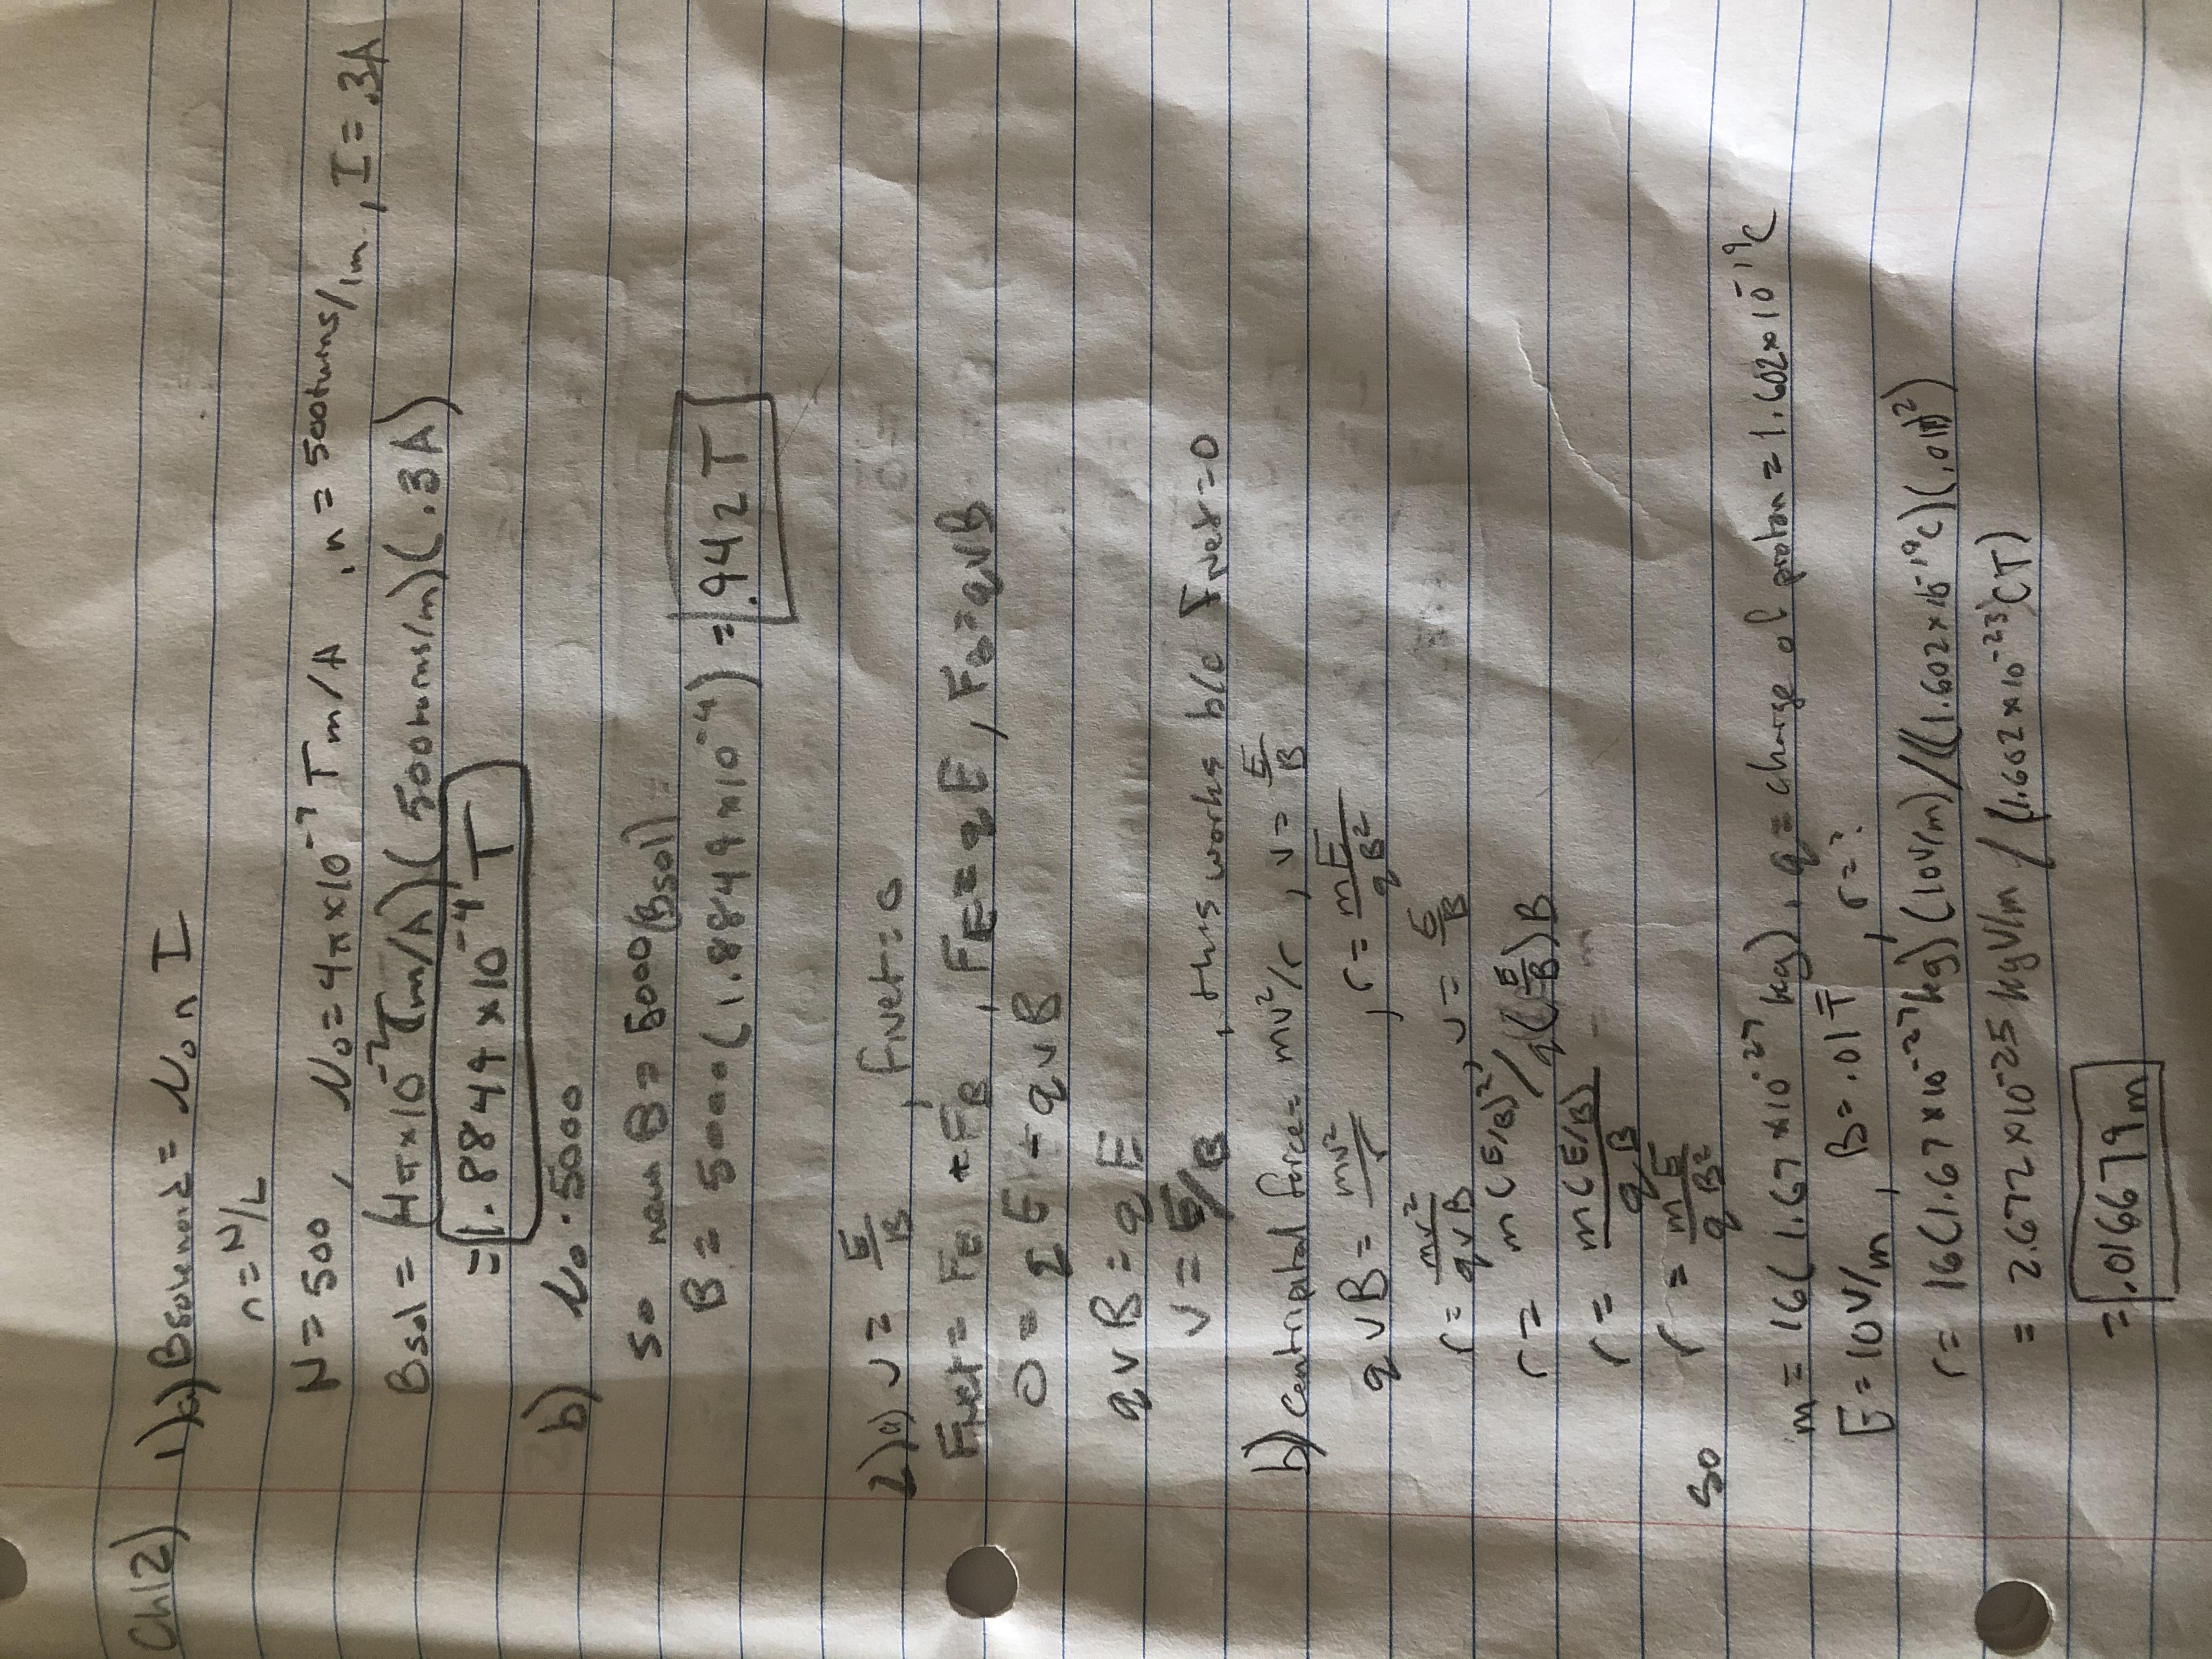 Ch12) 1)a) Bsolenoid = μ₀ n I
n = N/L
N = 500 , μ₀ = 4π×10⁻⁷ Tm/A , n = 500turns/1m , I = .3A
Bsol = (4π×10⁻⁷Tm/A)(500turns/m)(.3A)
= 1.8849×10⁻⁴ T
b) μ₀ · 5000
so new B = 5000(Bsol)
B = 5000(1.8849×10⁻⁴) = .942 T
2)a) v = E/B , FNet = 0
FNet = FE + FB , FE = qE , FB = qvB
0 = qE - qvB
qvB = qE
v = E/B , this works b/c FNet = 0
b) centripital force = mv²/r , v = E/B
qvB = mv²/r , r = mE/qB²
r = mv²/qvB , v = E/B
r = m(E/B)²/q(E/B)B
r = m(E/B)/qB
so r = mE/qB²
m = 16(1.67×10⁻²⁷kg) , q = charge of proton = 1.602×10⁻¹⁹C
E = 10V/m , B = .01T , r = ?
r = 16(1.67×10⁻²⁷kg)(10V/m)/((1.602×10⁻¹⁹C)(.01T)²)
= 2.672×10⁻²⁵ kgV/m / (1.602×10⁻²³CT)
= .016679m